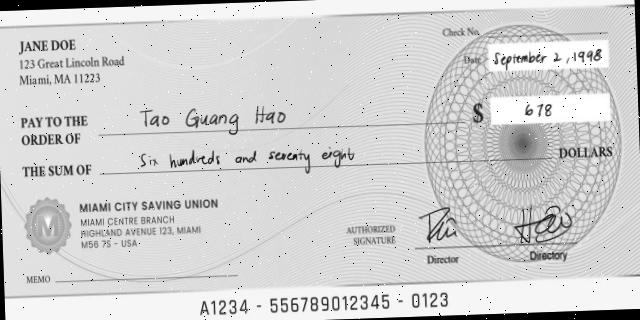 JANE DOE
123 Great Lincoln Road
Miami, MA 11223
Check No.
Date September 2, 1998
PAY TO THE
ORDER OF Tao Guang Hao
$ 678
THE SUM OF Six hundreds and seventy eight DOLLARS
M
MIAMI CITY SAVING UNION
MIAMI CENTRE BRANCH
HIGHLAND AVENUE 123, MIAMI
M56 75 - USA
AUTHORIZED
SIGNATURE
Director
Directory
MEMO
A1234 - 556789012345 - 0123